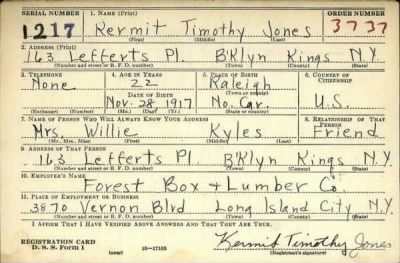 SERIAL NUMBER 1. NAME (Print) ORDER NUMBER
1217 Kermit Timothy Jones 3737
(First) (Middle) (Last)
2. ADDRESS (Print)
163 Lefferts Pl. B'Klyn Kings N.Y.
(Number and street or R. F. D. number) (Town) (County) (State)
3. TELEPHONE 4. AGE IN YEARS 5. PLACE OF BIRTH 6. COUNTRY OF CITIZENSHIP
None 22 Raleigh
DATE OF BIRTH (Town or county)
Nov. 28, 1917 No. Car. U.S.
(Exchange) (Number) (Mo.) (Day) (Yr.) (State or country)
7. NAME OF PERSON WHO WILL ALWAYS KNOW YOUR ADDRESS 8. RELATIONSHIP OF THAT PERSON
Mrs. Willie Kyles Friend
(Mr., Mrs., Miss) (First) (Middle) (Last)
9. ADDRESS OF THAT PERSON
163 Lefferts Pl. B'Klyn Kings N.Y.
(Number and street or R. F. D. number) (Town) (County) (State)
10. EMPLOYER'S NAME
Forest Box + Lumber Co.
11. PLACE OF EMPLOYMENT OR BUSINESS
3870 Vernon Blvd Long Island City N.Y.
(Number and street or R. F. D. number) (Town) (County) (State)
I AFFIRM THAT I HAVE VERIFIED ABOVE ANSWERS AND THAT THEY ARE TRUE.
REGISTRATION CARD
D. S. S. Form 1 (over) 16—17105 Kermit Timothy Jones